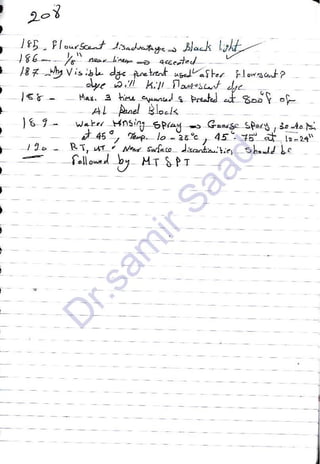 208
185 - Flourscent disadvantage → black light
186 - 1/8" near linear → accepted
187 - Why Visible dye penetrant used after Flourscent?
dye will kill flourscent dye.
188 - Max. 3 time quenched & Preheated at 800°F of
AL panel Blocks
189 - water rinsing spray → Coarse spary, 30-40 Psi
at 45°, Temp. 10-38°C, 45°-75° at 12-24"
190 - RT, UT Near surface discontinuities, should be
followed by MT & PT
Dr.samir Saad